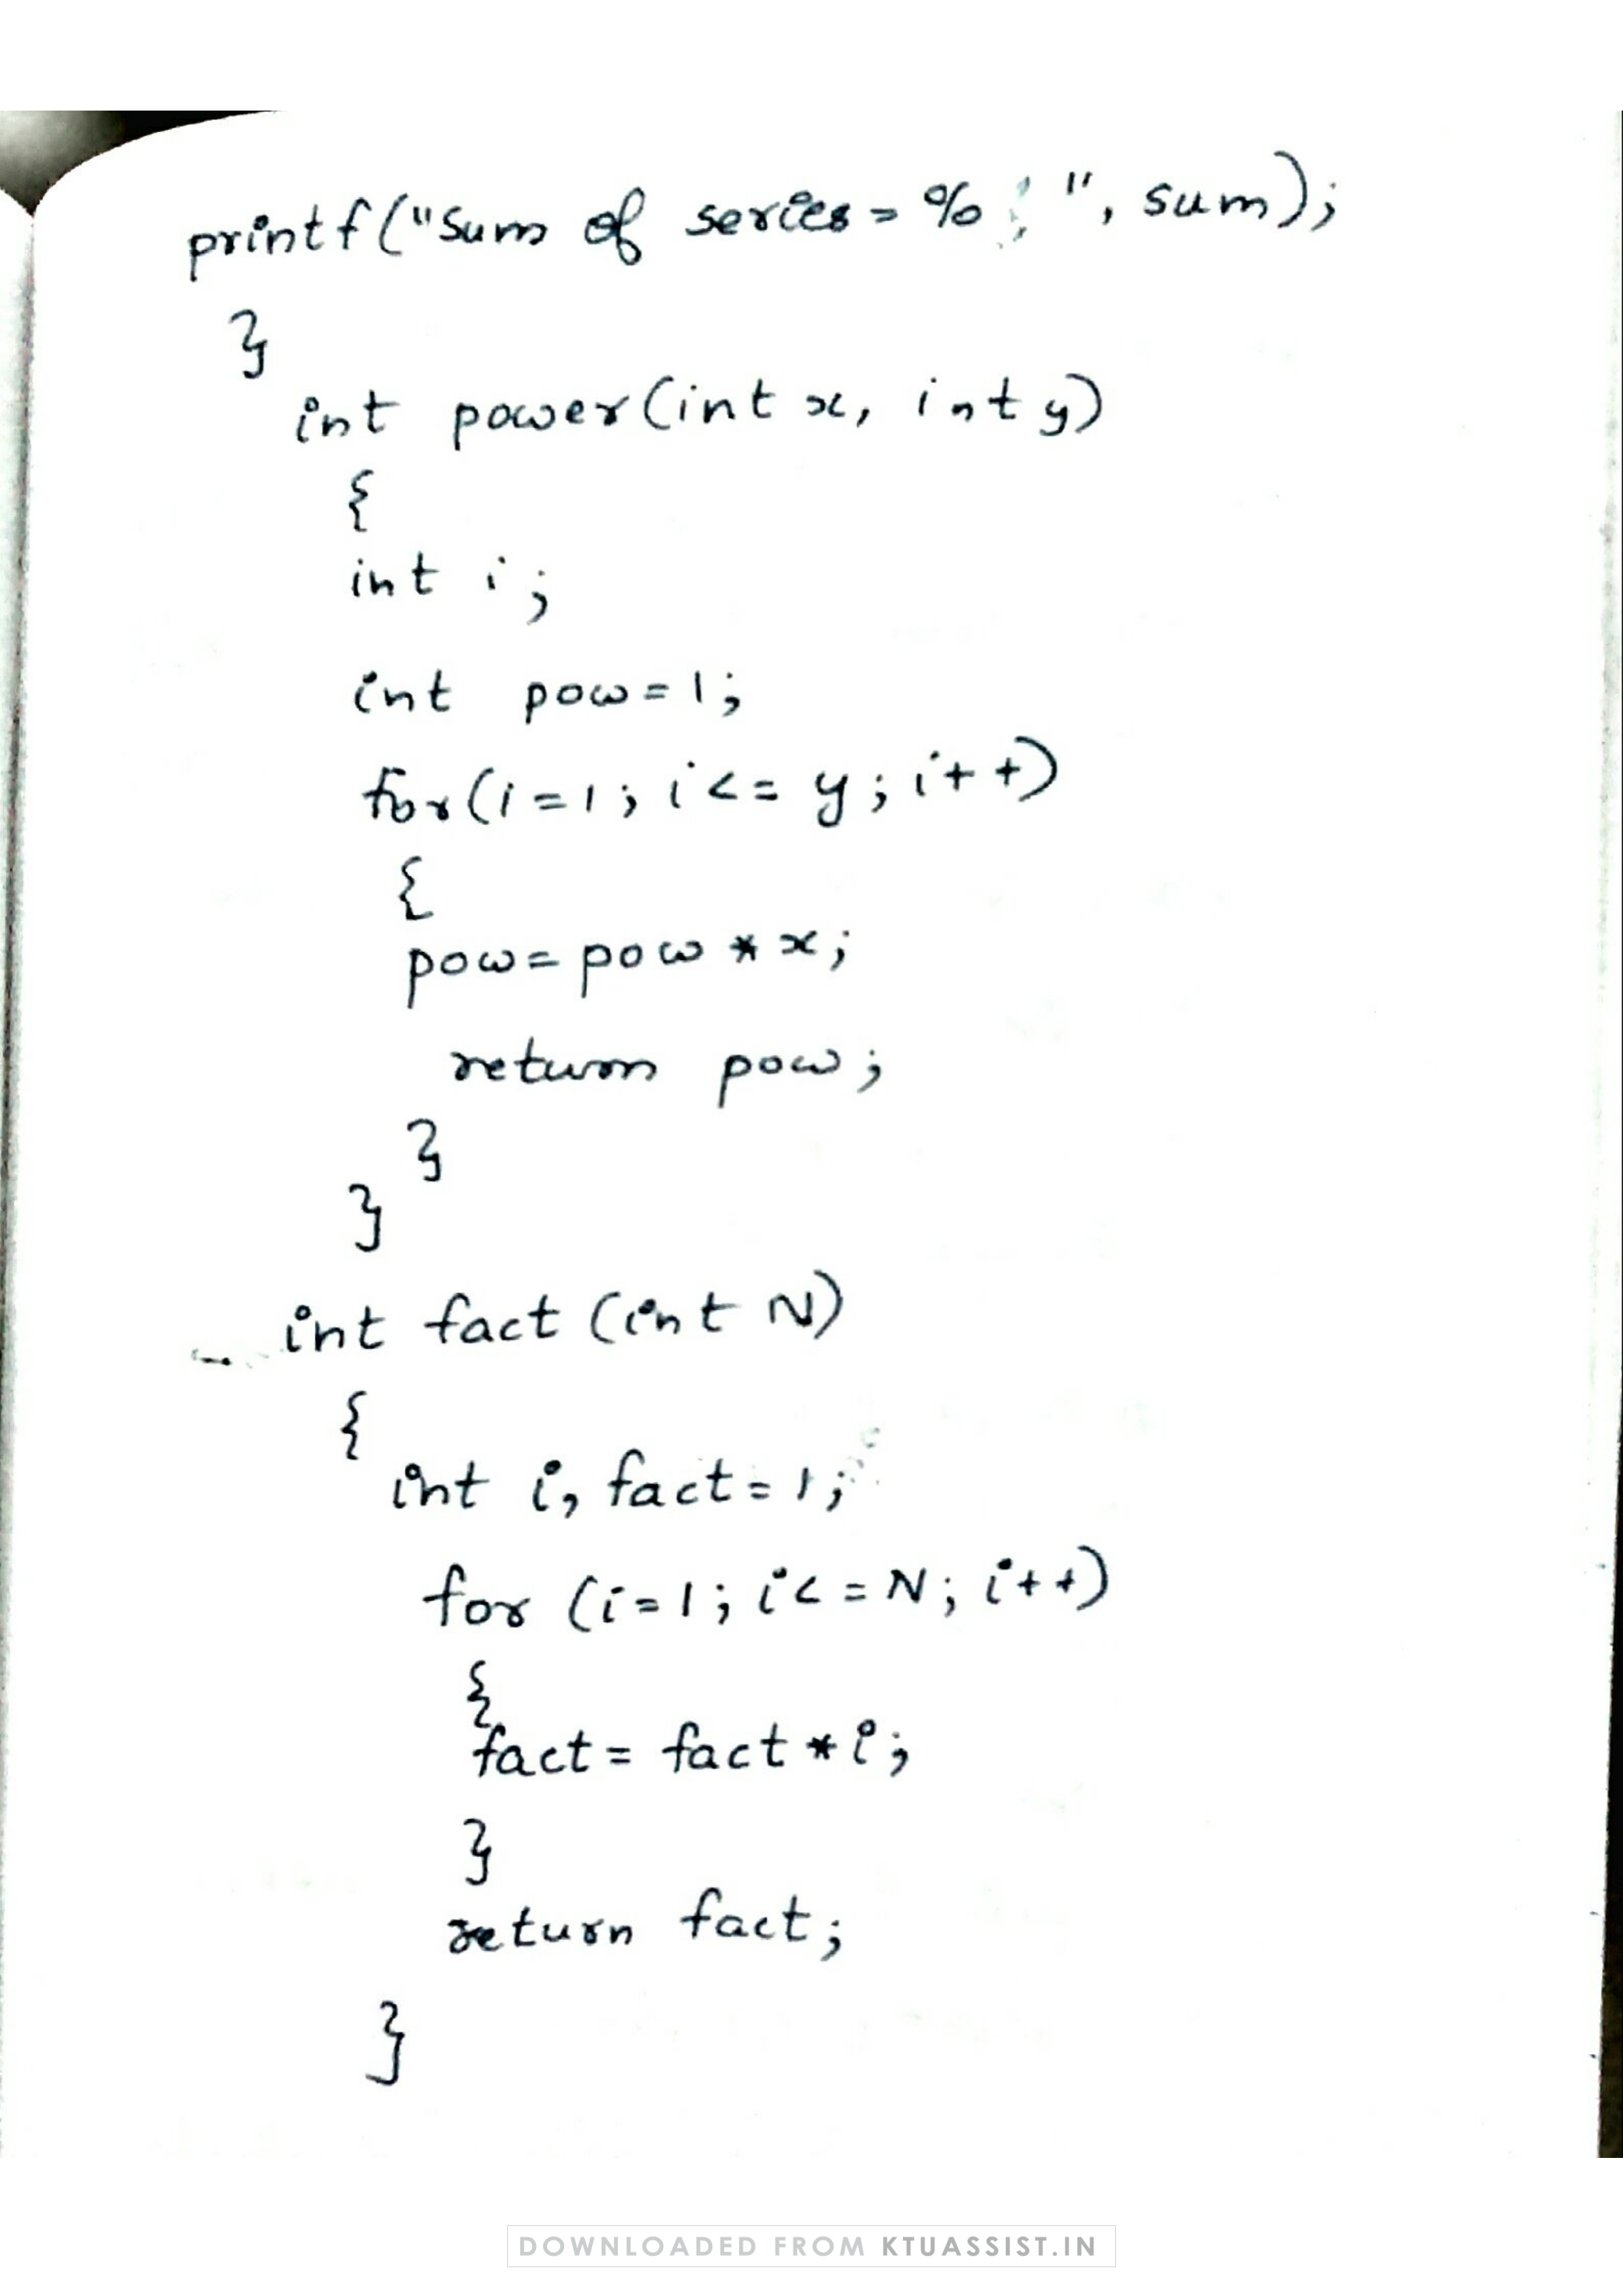 printf("Sum of series = % ", sum);
}
int power(int x, int y)
{
int i;
int pow=1;
for(i=1; i<=y; i++)
{
pow=pow*x;
return pow;
}
}
int fact (int N)
{
int i, fact=1;
for (i=1; i<=N; i++)
{
fact= fact*i;
}
return fact;
}
DOWNLOADED FROM KTUASSIST.IN